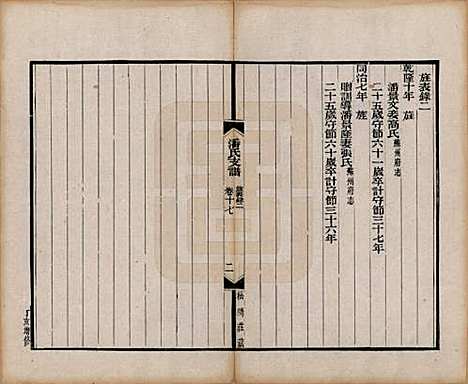 旌表錄二
乾隆十年 旌
潘景文妻高氏 蘇州府志
二十五歲守節六十一歲卒計守節三十七年
同治七年 旌
贈訓導潘景陸妻張氏 蘇州府志
二十五歲守節六十歲卒計守節三十六年
潘氏支譜
卷十七
二
松鱗莊